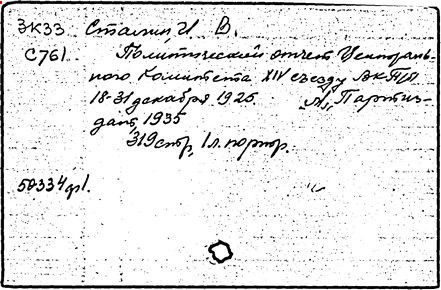 ЭКЗЗ Сталин, И. В.
С761 Политический отчет Централь-
ного Комитета XIV съезду ВКП(б)
18-31 декабря 1925. Л., Партиз-
дат, 1935
319 стр, 1 л. портр.
50334 ф1.